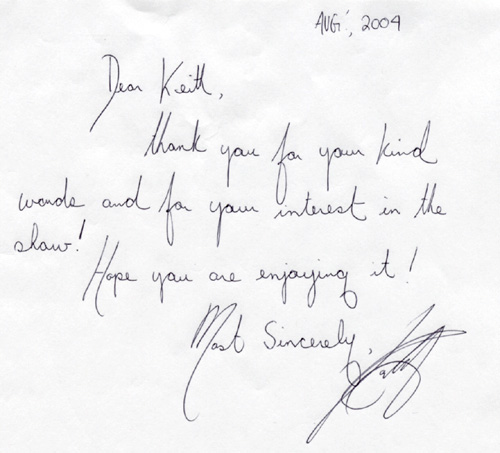 AUG', 2004
Dear Keith,
Thank you for your kind
words and for your interest in the
show!
Hope you are enjoying it!
Most Sincerely,